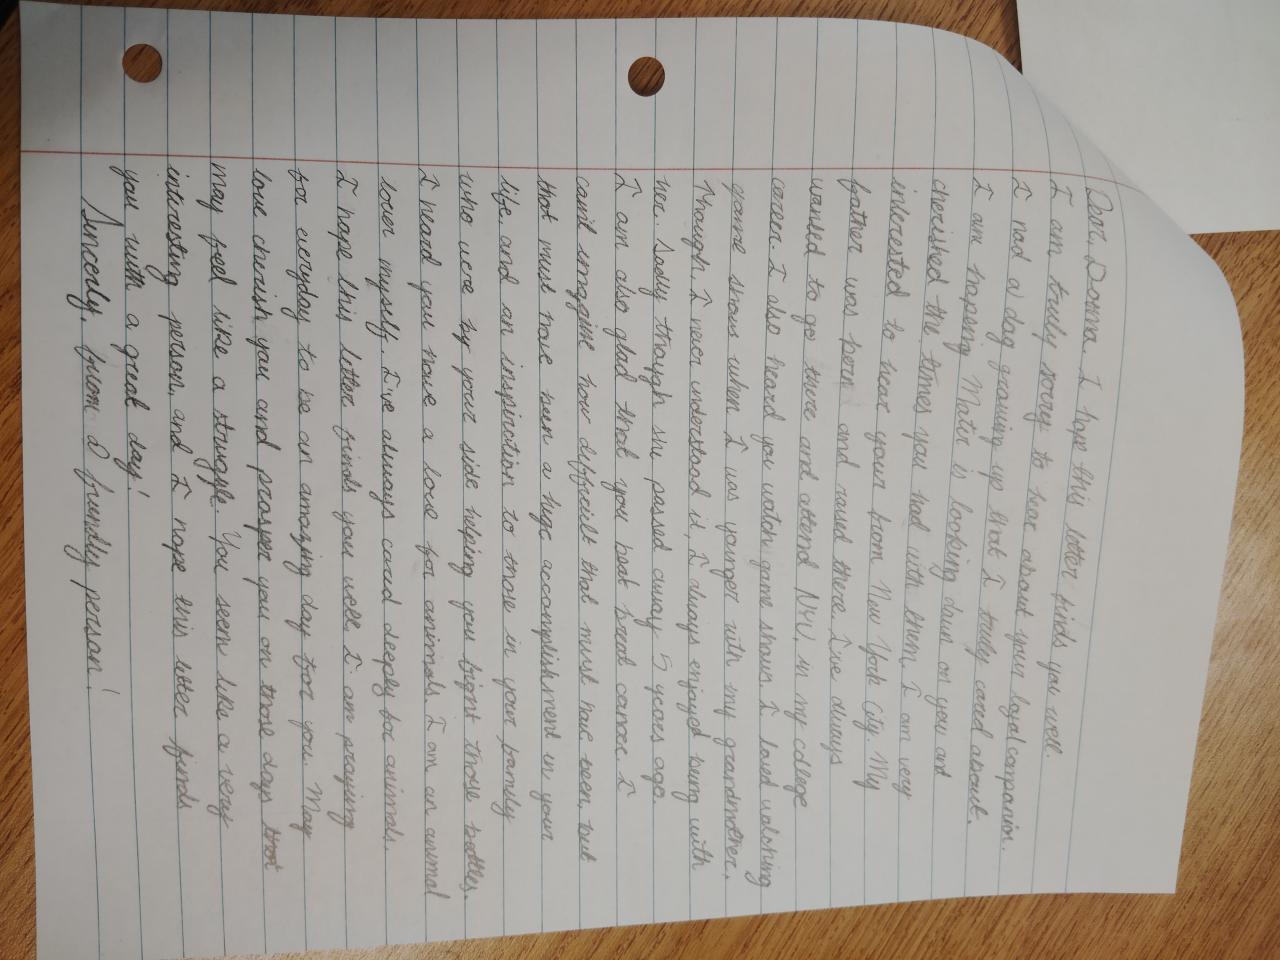 Dear, Donna. I hope this letter finds you well.
I am truly sorry to hear about your loyal companion.
I had a dog growing up that I truly cared about.
I am hopping Mater is looking down on you and
cherished the times you had with them. I am very
interested to hear your from New York City. My
father was born and raised there. I've always
wanted to go there and attend NYU, in my college
career. I also heard you watch game shows. I loved watching
game shows when I was younger with my grandmother.
Though I never understood it, I always enjoyed being with
her. Sadly though she passed away 5 years ago.
I am also glad that you beat breast cancer. I
can't imagine how difficult that must have been, but
that must have been a huge accomplishment in your
life, and an inspiration to those in your family
who were by your side helping you fight those battles.
I heard you have a love for animals. I am an animal
lover myself. I've always cared deeply for animals.
I hope this letter finds you well I am praying
for everyday to be an amazing day for you. May
love cherish you and prosper you on those days that
may feel like a struggle. You seem like a very
interesting person, and I hope this letter finds
you with a great day!
Sincerely, from a friendly person!